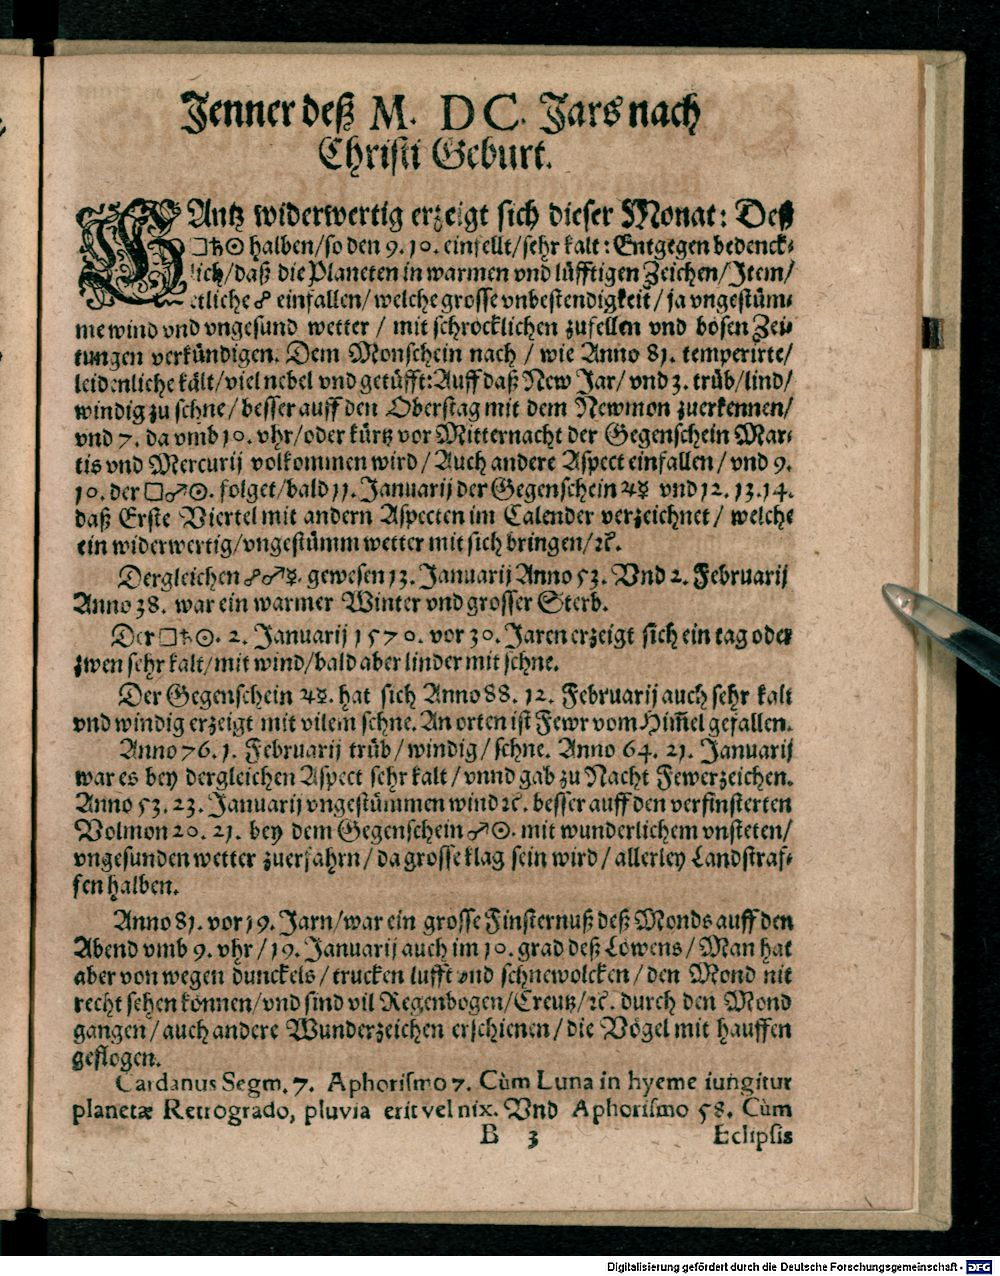 Jenner deß M. DC. Jars nach
Christi Geburt.
GAntz widerwertig erzeigt sich dieser Monat: Deß
□♄☉ halben/so den 9. 10. einfellt/sehr kalt: Entgegen bedenck⸗
lich/daß die Planeten in warmen vnd lüfftigen Zeichen/Item/
etliche ☍ einfallen/welche grosse vnbestendigkeit/ja vngestüm⸗
me wind vnd vngesund wetter / mit schröcklichen zufellen vnd bösen Zei⸗
tungen verkündigen. Dem Monschein nach / wie Anno 81. temperirte/
leidenliche kält/viel nebel vnd getüfft: Auff daß New Jar/ vnd 3. trüb/lind/
windig zu schne/besser auff den Oberstag mit dem Newmon zuerkennen/
vnd 7. da vmb 10. vhr/oder kürtz vor Mitternacht der Gegenschein Mar⸗
tis vnd Mercurij volkommen wird/ Auch andere Aspect einfallen/ vnd 9.
10. der □♂☉. folget/bald 11. Januarij der Gegenschein ♃☿ vnd 12. 13. 14.
daß Erste Viertel mit andern Aspecten im Calender verzeichnet/ welche
ein widerwertig/vngestümm wetter mit sich bringen/ꝛc.
Dergleichen ☍♂☿. gewesen 13. Januarij Anno 53. Vnd 2. Februarij
Anno 38. war ein warmer Winter vnd grosser Sterb.
Der □♄☉. 2. Januarij 1570. vor 30. Jaren erzeigt sich ein tag oder
zwen sehr kalt/mit wind/bald aber linder mit schne.
Der Gegenschein ♃☿. hat sich Anno 88. 12. Februarij auch sehr kalt
vnd windig erzeigt mit vilem schne. An orten ist Fewr vom Him̃el gefallen.
Anno 76. 1. Februarij trüb/windig/schne. Anno 64. 21. Januarij
war es bey dergleichen Aspect sehr kalt/vnnd gab zu Nacht Fewerzeichen.
Anno 53. 23. Januarij vngestümmen wind ꝛc. besser auff den verfinsterten
Volmon 20. 21. bey dem Gegenschein ♂☉. mit wunderlichem vnsteten/
vngesunden wetter zuerfahrn/da grosse klag sein wird/allerley Landstraf⸗
fen halben.
Anno 81. vor 19. Jarn/war ein grosse Finsternuß deß Monds auff den
Abend vmb 9. vhr/19. Januarij auch im 10. grad deß Löwens/Man hat
aber von wegen dunckels/trucken lufft vnd schnewolcken/den Mond nit
recht sehen können/vnd sind vil Regenbogen/Creutz/ꝛc. durch den Mond
gangen/auch andere Wunderzeichen erschienen/die Vögel mit hauffen
geflogen.
Cardanus Segm. 7. Aphorismo 7. Cùm Luna in hyeme iungitur
planetæ Retrogrado, pluvia erit vel nix. Vnd Aphorismo 58. Cùm
B 3 Eclipsis
Digitalisierung gefördert durch die Deutsche Forschungsgemeinschaft - DFG